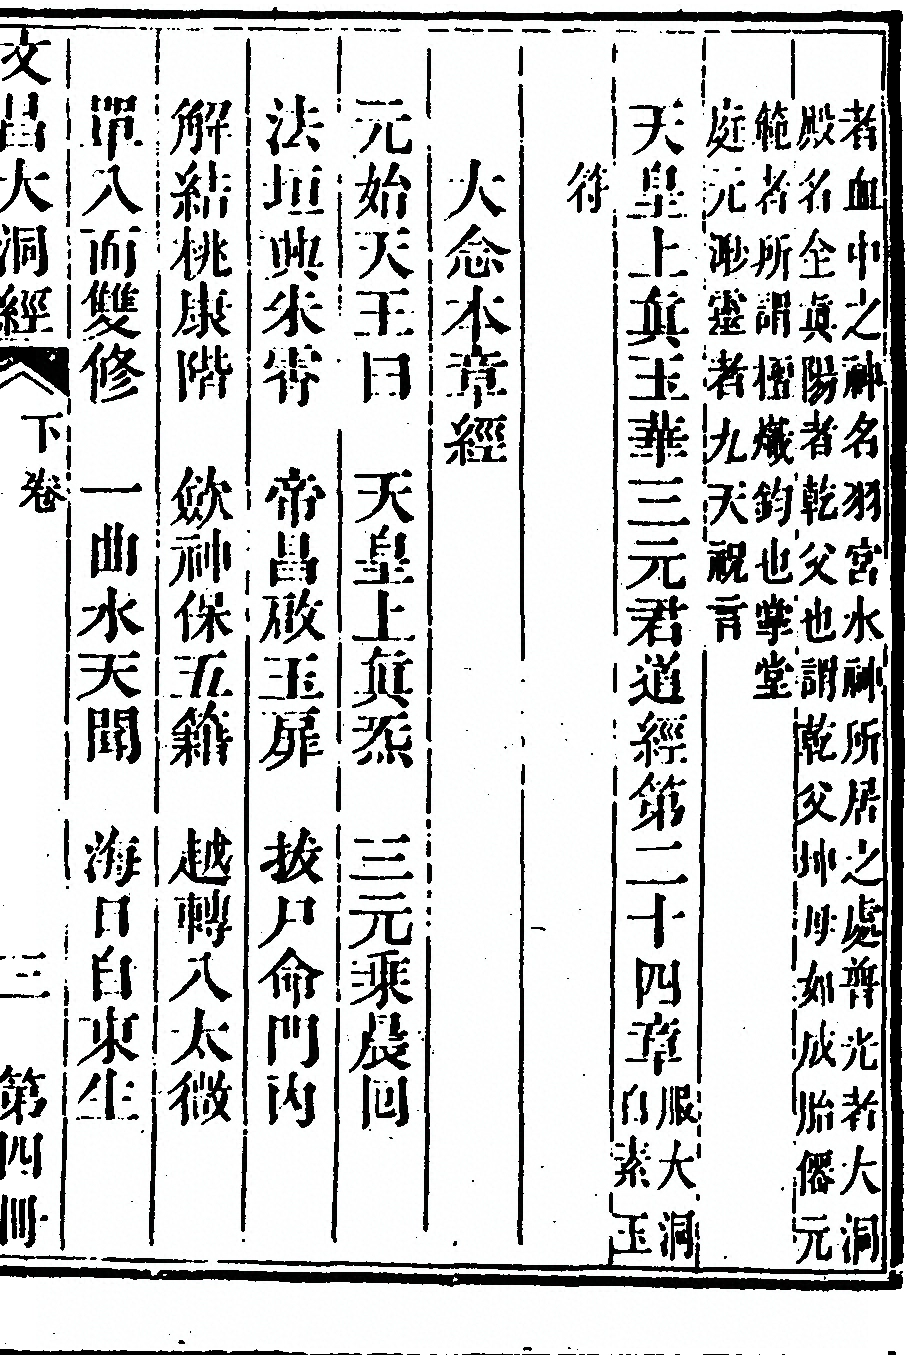 者血中之神名羽宮水神所居之處普光者大洞
殿名全眞陽者乾父也謂乾父坤母如成胎僊元
範者所謂樞熾鈞也掌堂
庭元渺靈者九天祝言
天皇上眞玉華三元君道經第二十四章
服大洞
白素玉
符
大念本章經
元始天王曰 天皇上眞炁 三元乘晨回
法垣典朱宵 帝昌啟玉扉 拔尸命門內
解結桃康階 斂神保五籍 越轉八太微
單八而雙修 一曲水天聞 海日自東生
文昌大洞經 下卷 三 第四冊